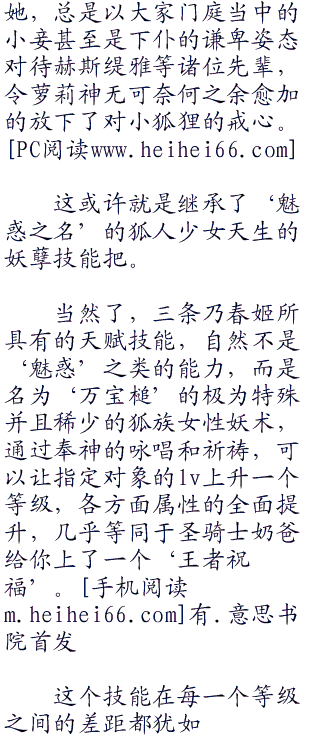 她，总是以大家门庭当中的
小妾甚至是下仆的谦卑姿态
对待赫斯缇雅等诸位先辈，
令萝莉神无可奈何之余愈加
的放下了对小狐狸的戒心。
[PC阅读www.heihei66.com]
这或许就是继承了‘魅
惑之名’的狐人少女天生的
妖孽技能把。
当然了，三条乃春姬所
具有的天赋技能，自然不是
‘魅惑’之类的能力，而是
名为‘万宝槌’的极为特殊
并且稀少的狐族女性妖术，
通过奉神的咏唱和祈祷，可
以让指定对象的lv上升一个
等级，各方面属性的全面提
升，几乎等同于圣骑士奶爸
给你上了一个‘王者祝
福’。[手机阅读
m.heihei66.com]有.意思书
院首发
这个技能在每一个等级
之间的差距都犹如